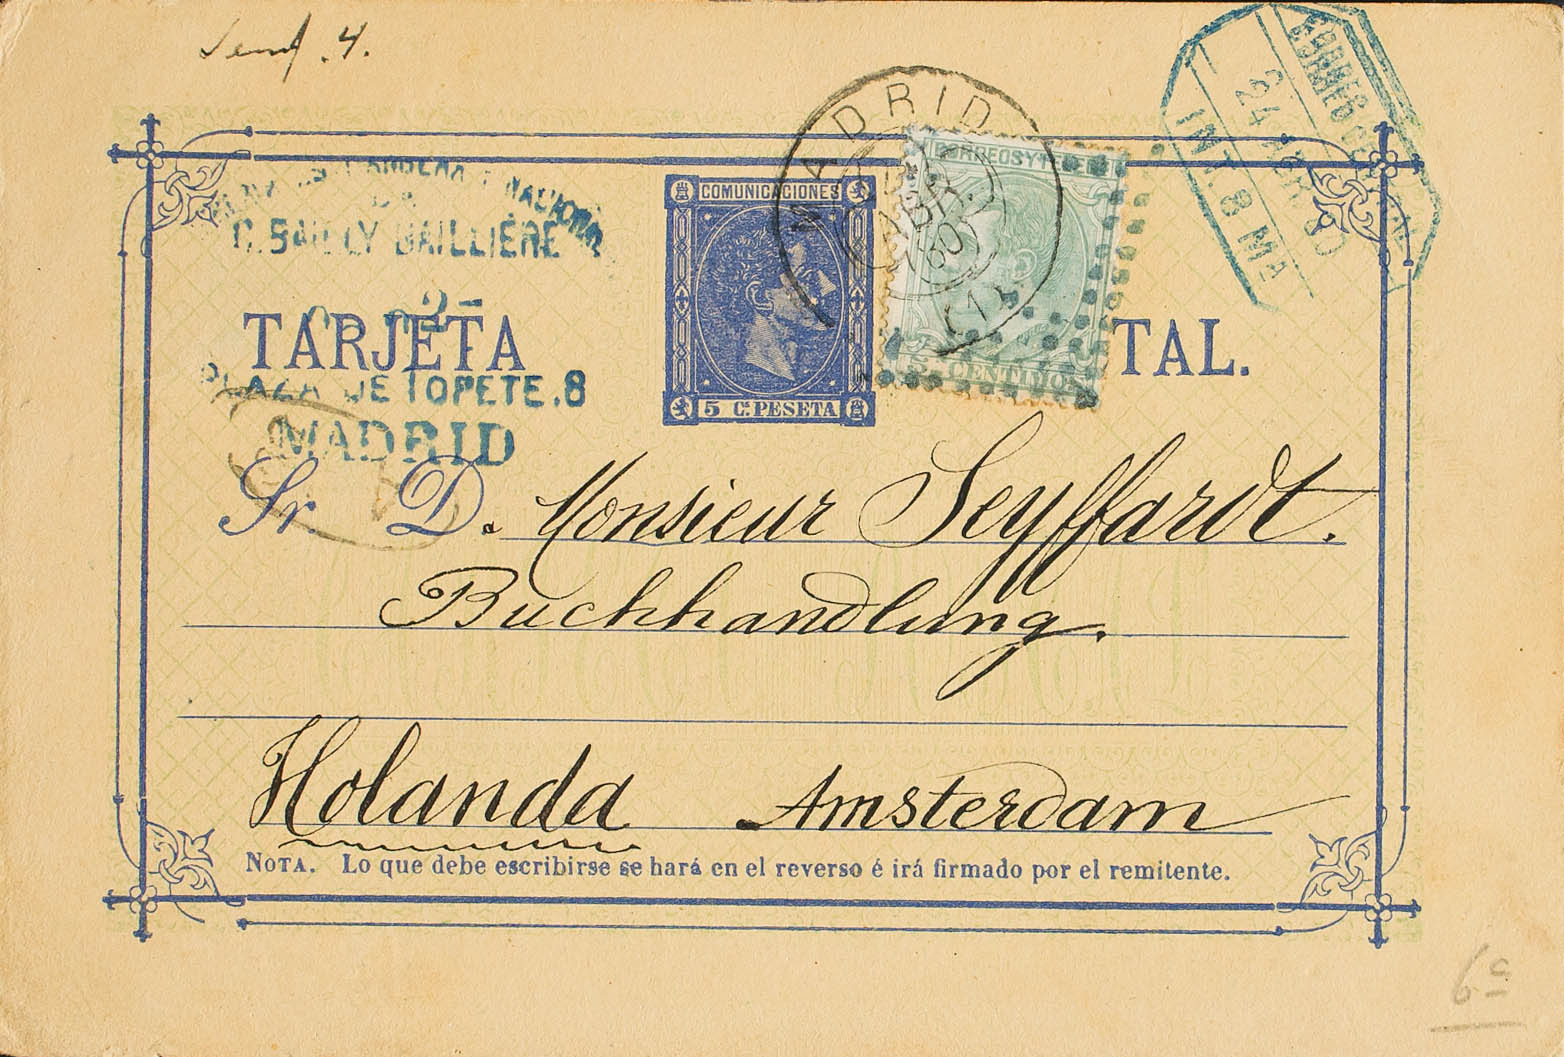 4.
MADRID
ABR.
80
CORREOS
24
INT. 8 MA
CORREOS Y TELEG
5 CENTIMOS
COMUNICACIONES
5 C. PESETA
C. BAILLY BAILLIÉRE
PLAZA DE TOPETE. 8
MADRID
TARJETA POSTAL.
Sr D. Monsieur Seyffardt.
Buchhandlung.
Holanda Amsterdam
NOTA. Lo que debe escribirse se hará en el reverso é irá firmado por el remitente.
6c